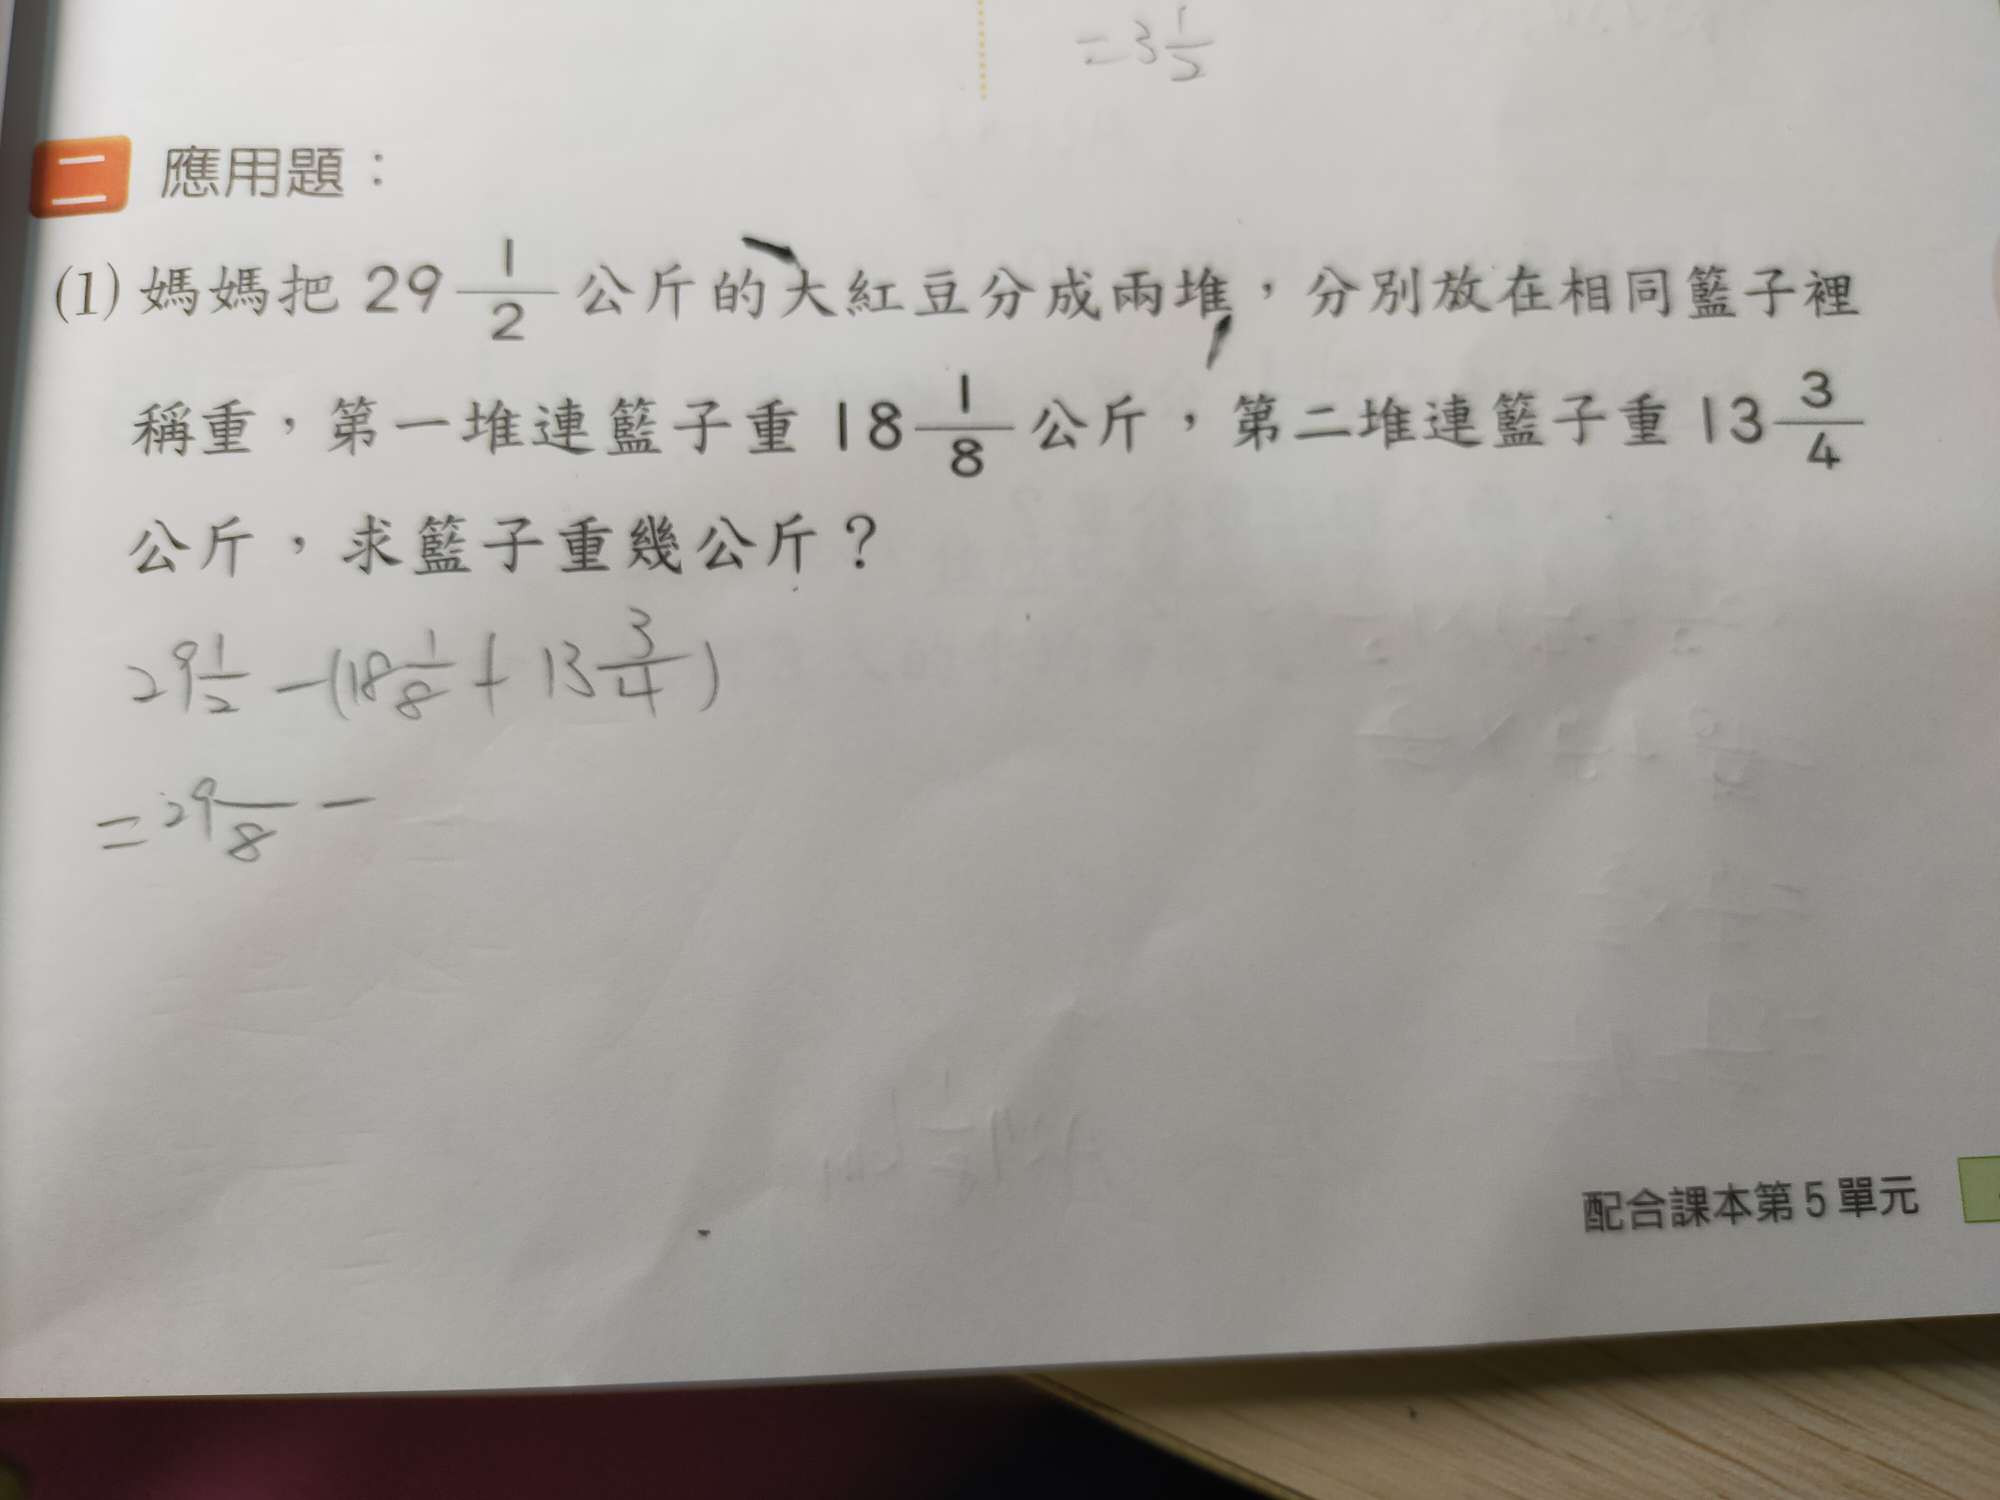 =3 1/2
二 應用題：
(1) 媽媽把 29 1/2 公斤的大紅豆分成兩堆，分別放在相同籃子裡
稱重，第一堆連籃子重 18 1/8 公斤，第二堆連籃子重 13 3/4
公斤，求籃子重幾公斤？
29 1/2 - (18 1/8 + 13 3/4)
= 29 /8 -
配合課本第5單元